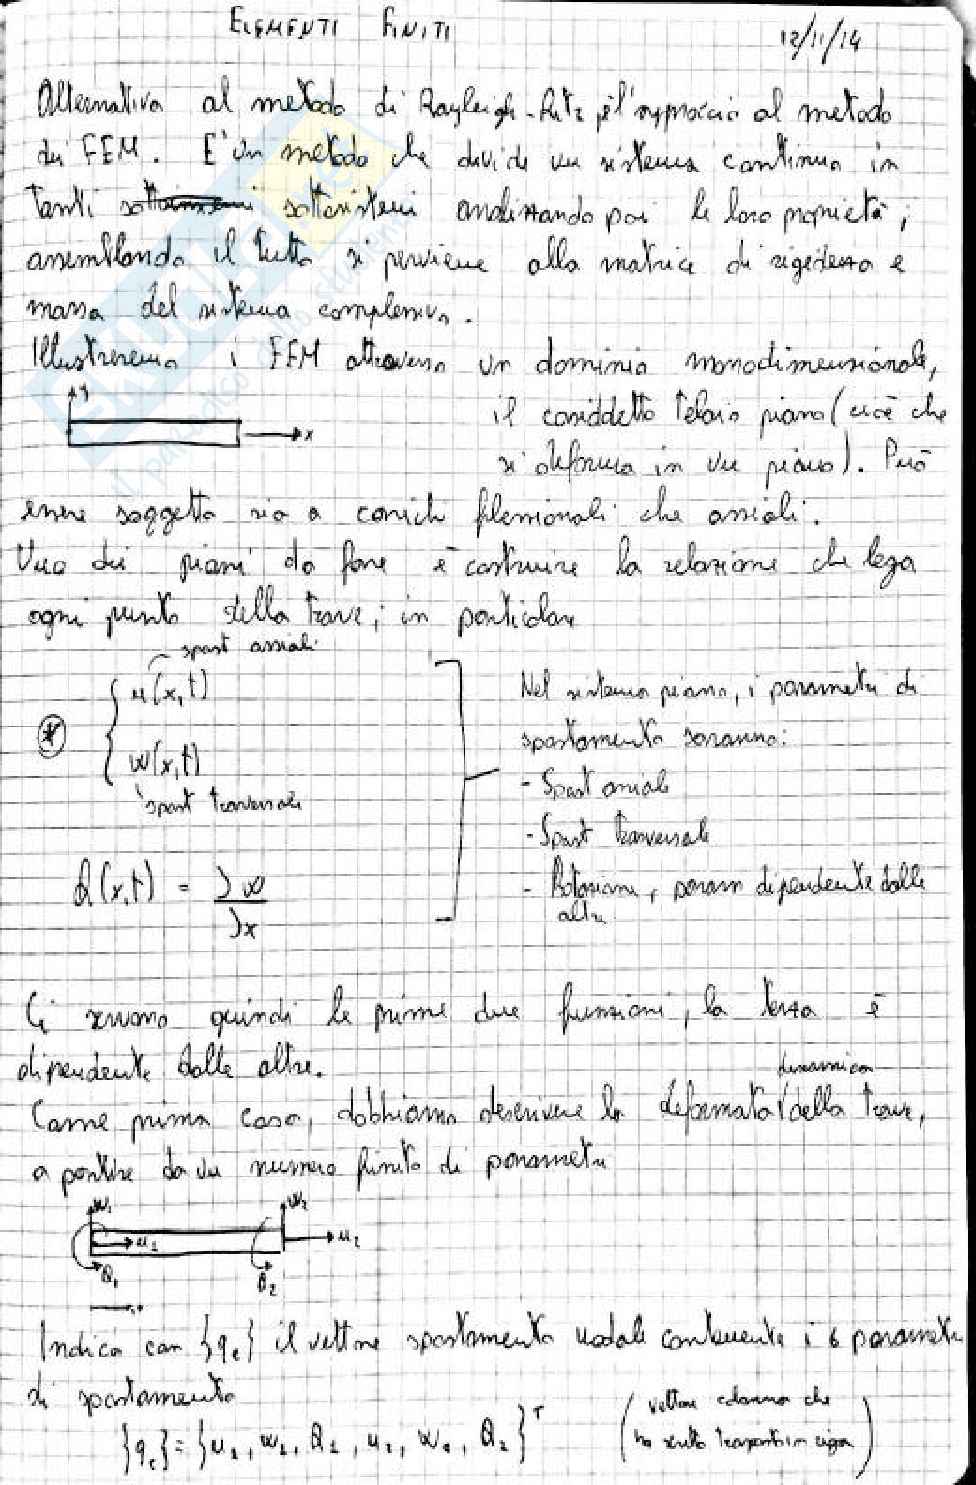 ELEMENTI FINITI
12/11/14
Alternativa al metodo di Rayleigh-Ritz è l'approccio al metodo
dei FEM. E' un metodo che divide un sistema continuo in
tanti sottosistemi analizzando poi le loro proprietà,
assemblando il tutto si perviene alla matrice di rigidezza e
massa del sistema complessivo.
Illustreremo i FEM attraverso un dominio monodimensionale,
y
x
il cosiddetto telaio piano (cioè che
si deforma in un piano). Può
essere soggetto sia a carichi flessionali che assiali.
Uno dei piani da fare è costruire la relazione che lega
ogni punto della trave, in particolare
spost assiali
u(x,t)
w(x,t)
spost trasversali
θ(x,t) = ∂w/∂x
Nel sistema piano, i parametri di
spostamento saranno:
- Spost assiale
- Spost trasversale
- Rotazione, param dipendente dalle
altre
Ci servono quindi le prime due funzioni, la terza è
dipendente dalle altre.
dinamica
Come prima cosa, dobbiamo descrivere la deformata della trave,
a partire da un numero finito di parametri
w₁ w₂
u₁ u₂
θ₁ θ₂
Indico con {qₑ} il vettore spostamento nodale contenente i 6 parametri
di spostamento
{qₑ} = {u₁, w₁, θ₁, u₂, w₂, θ₂}ᵀ
(vettore colonna che
ho scritto trasposto in riga)